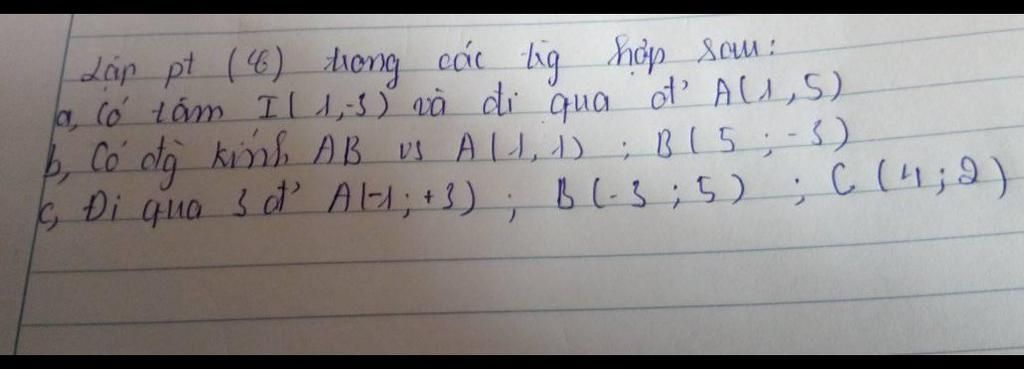 Lập pt (C) trong các tg hợp sau:
a, Có tâm I(1,-3) và đi qua đ' A(1,5)
b, Có đg kính AB vs A(1,1) ; B(5 ; -3)
c, Đi qua 3 đ' A(-1 ; +3) ; B(-3 ; 5) ; C(4 ; 2)